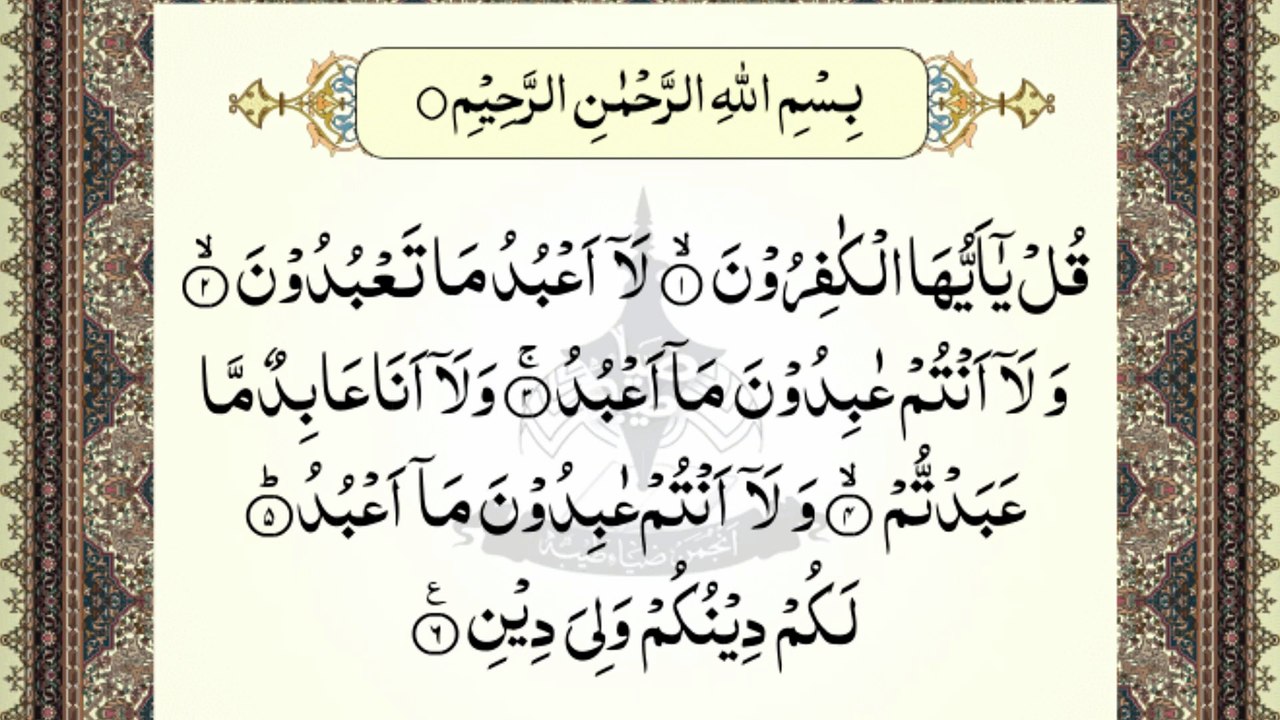 بِسْمِ اللهِ الرَّحْمٰنِ الرَّحِیْمِ○
قُلْ یٰۤاَیُّهَا الْكٰفِرُوْنَ ۙ﴿۱﴾ لَاۤ اَعْبُدُ مَا تَعْبُدُوْنَ ۙ﴿۲﴾
وَ لَاۤ اَنْتُمْ عٰبِدُوْنَ مَاۤ اَعْبُدُ ۚ﴿۳﴾ وَلَاۤ اَنَا عَابِدٌ مَّا
عَبَدْتُّمْ ۙ﴿۴﴾ وَ لَاۤ اَنْتُمْ عٰبِدُوْنَ مَاۤ اَعْبُدُ ؕ﴿۵﴾
انجمن ضیاء طیبہ
لَكُمْ دِیْنُكُمْ وَلِیَ دِیْنِ ﴿۶﴾ ع